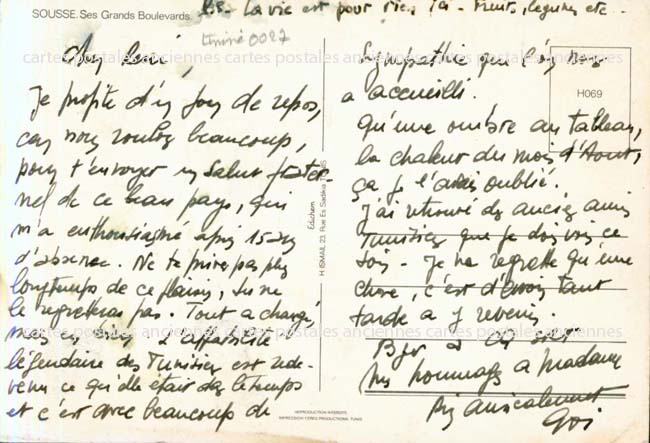 SOUSSE. Ses Grands Boulevards.
P.S. - La vie est pour rien, ici - Fruits, légumes etc...
0027
Je profite d'un jour de repos,
car nous roulons beaucoup,
pour t'envoyer un salut frater-
nel de ce beau pays, qui
m'a enthousiasmé après 15 ans
d'absence. Ne te prive pas plus
longtemps de ce plaisir, tu ne
le regretteras pas. Tout a changé,
L'affabilité
légendaire des Tunisiens est rede-
venu ce qu'elle était dans le temps
et c'est avec beaucoup de
Edichem
H. ISMAIL 23, Rue Es Sadikia
REPRODUCTION INTERDITE
IMPRESSION FINZI REPRODUCTION TUNIS
H069
sympathie que l'on nous
a accueilli.
Qu'une ombre au tableau,
la chaleur du mois d'Aout,
ça je l'avais oublié.
J'ai retrouvé des anciens amis
Tunisiens que je dois voir ce
soir - Je ne regrette qu'une
chose, c'est d'avoir tant
tardé à y revenir.
Mes hommages à Madame
Bien amicalement
cartes postales anciennes cartes postales anciennes cartes postales anciennes